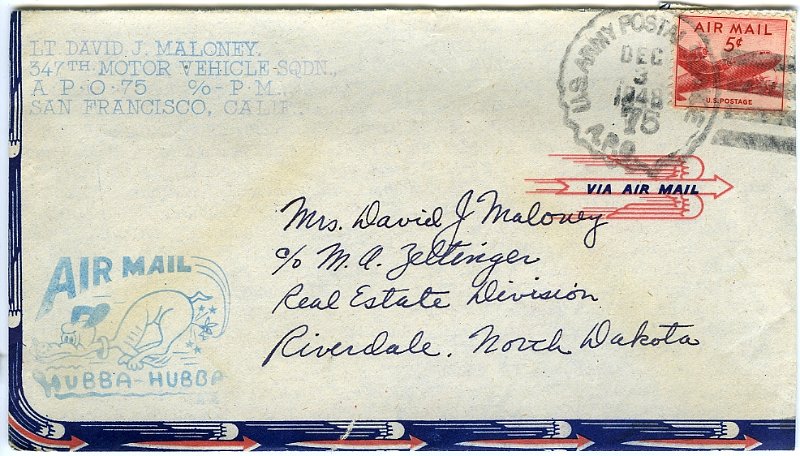 LT. DAVID J. MALONEY.
347TH. MOTOR VEHICLE SQDN.,
A P.O. 75 % - P.M.,
SAN FRANCISCO, CALIF.
U.S. ARMY POSTAL
DEC
3
1948
75
A.P.O.
AIR MAIL
5¢
U.S. POSTAGE
VIA AIR MAIL
Mrs. David J Maloney
c/o M. A. Zeltinger
Real Estate Division
Riverdale, North Dakota
AIR MAIL
HUBBA-HUBBA